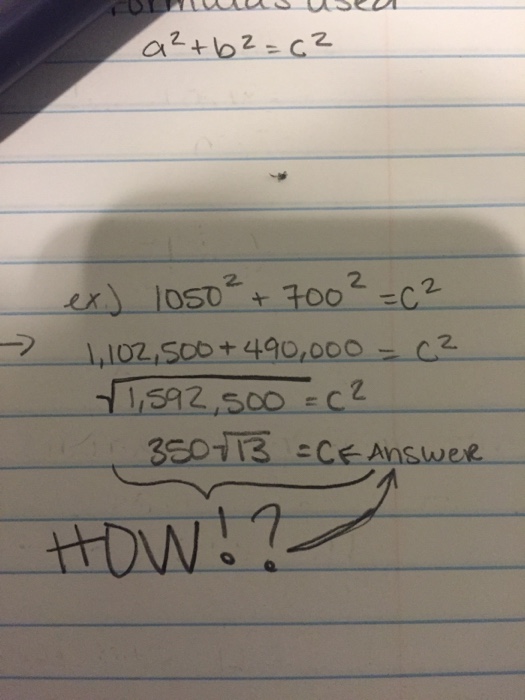 Formulas used
a² + b² = c²
ex.) 1050² + 700² = c²
→ 1,102,500 + 490,000 = c²
√1,592,500 = c²
350√13 = C ← Answer
HOW!?